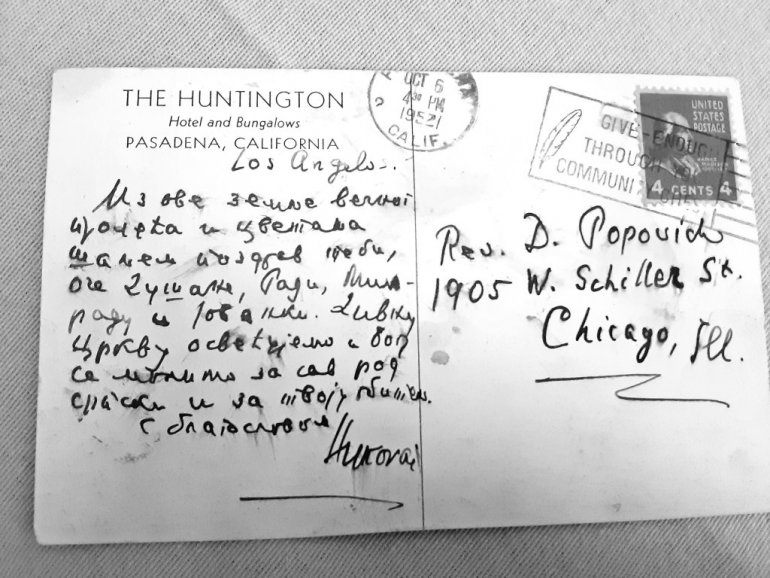 THE HUNTINGTON
Hotel and Bungalows
PASADENA, CALIFORNIA
Los Angelos.
Из ове земље вечног
пролећа и цветања
шаљем поздрав теби,
оче Душане, Ради, Мило-
раду и Јованки. Дивну
цркву освећујемо и Богу
се молимо за сав род
српски и за твоју
с благословом
Николај
OCT 6
4 30 PM
1952
CALIF.
GIVE-ENOUGH
THROUGH
COMMUNI
UNITED
STATES
POSTAGE
4 CENTS 4
Rev. D. Popovich
1905 W. Schiller St.
Chicago, Ill.